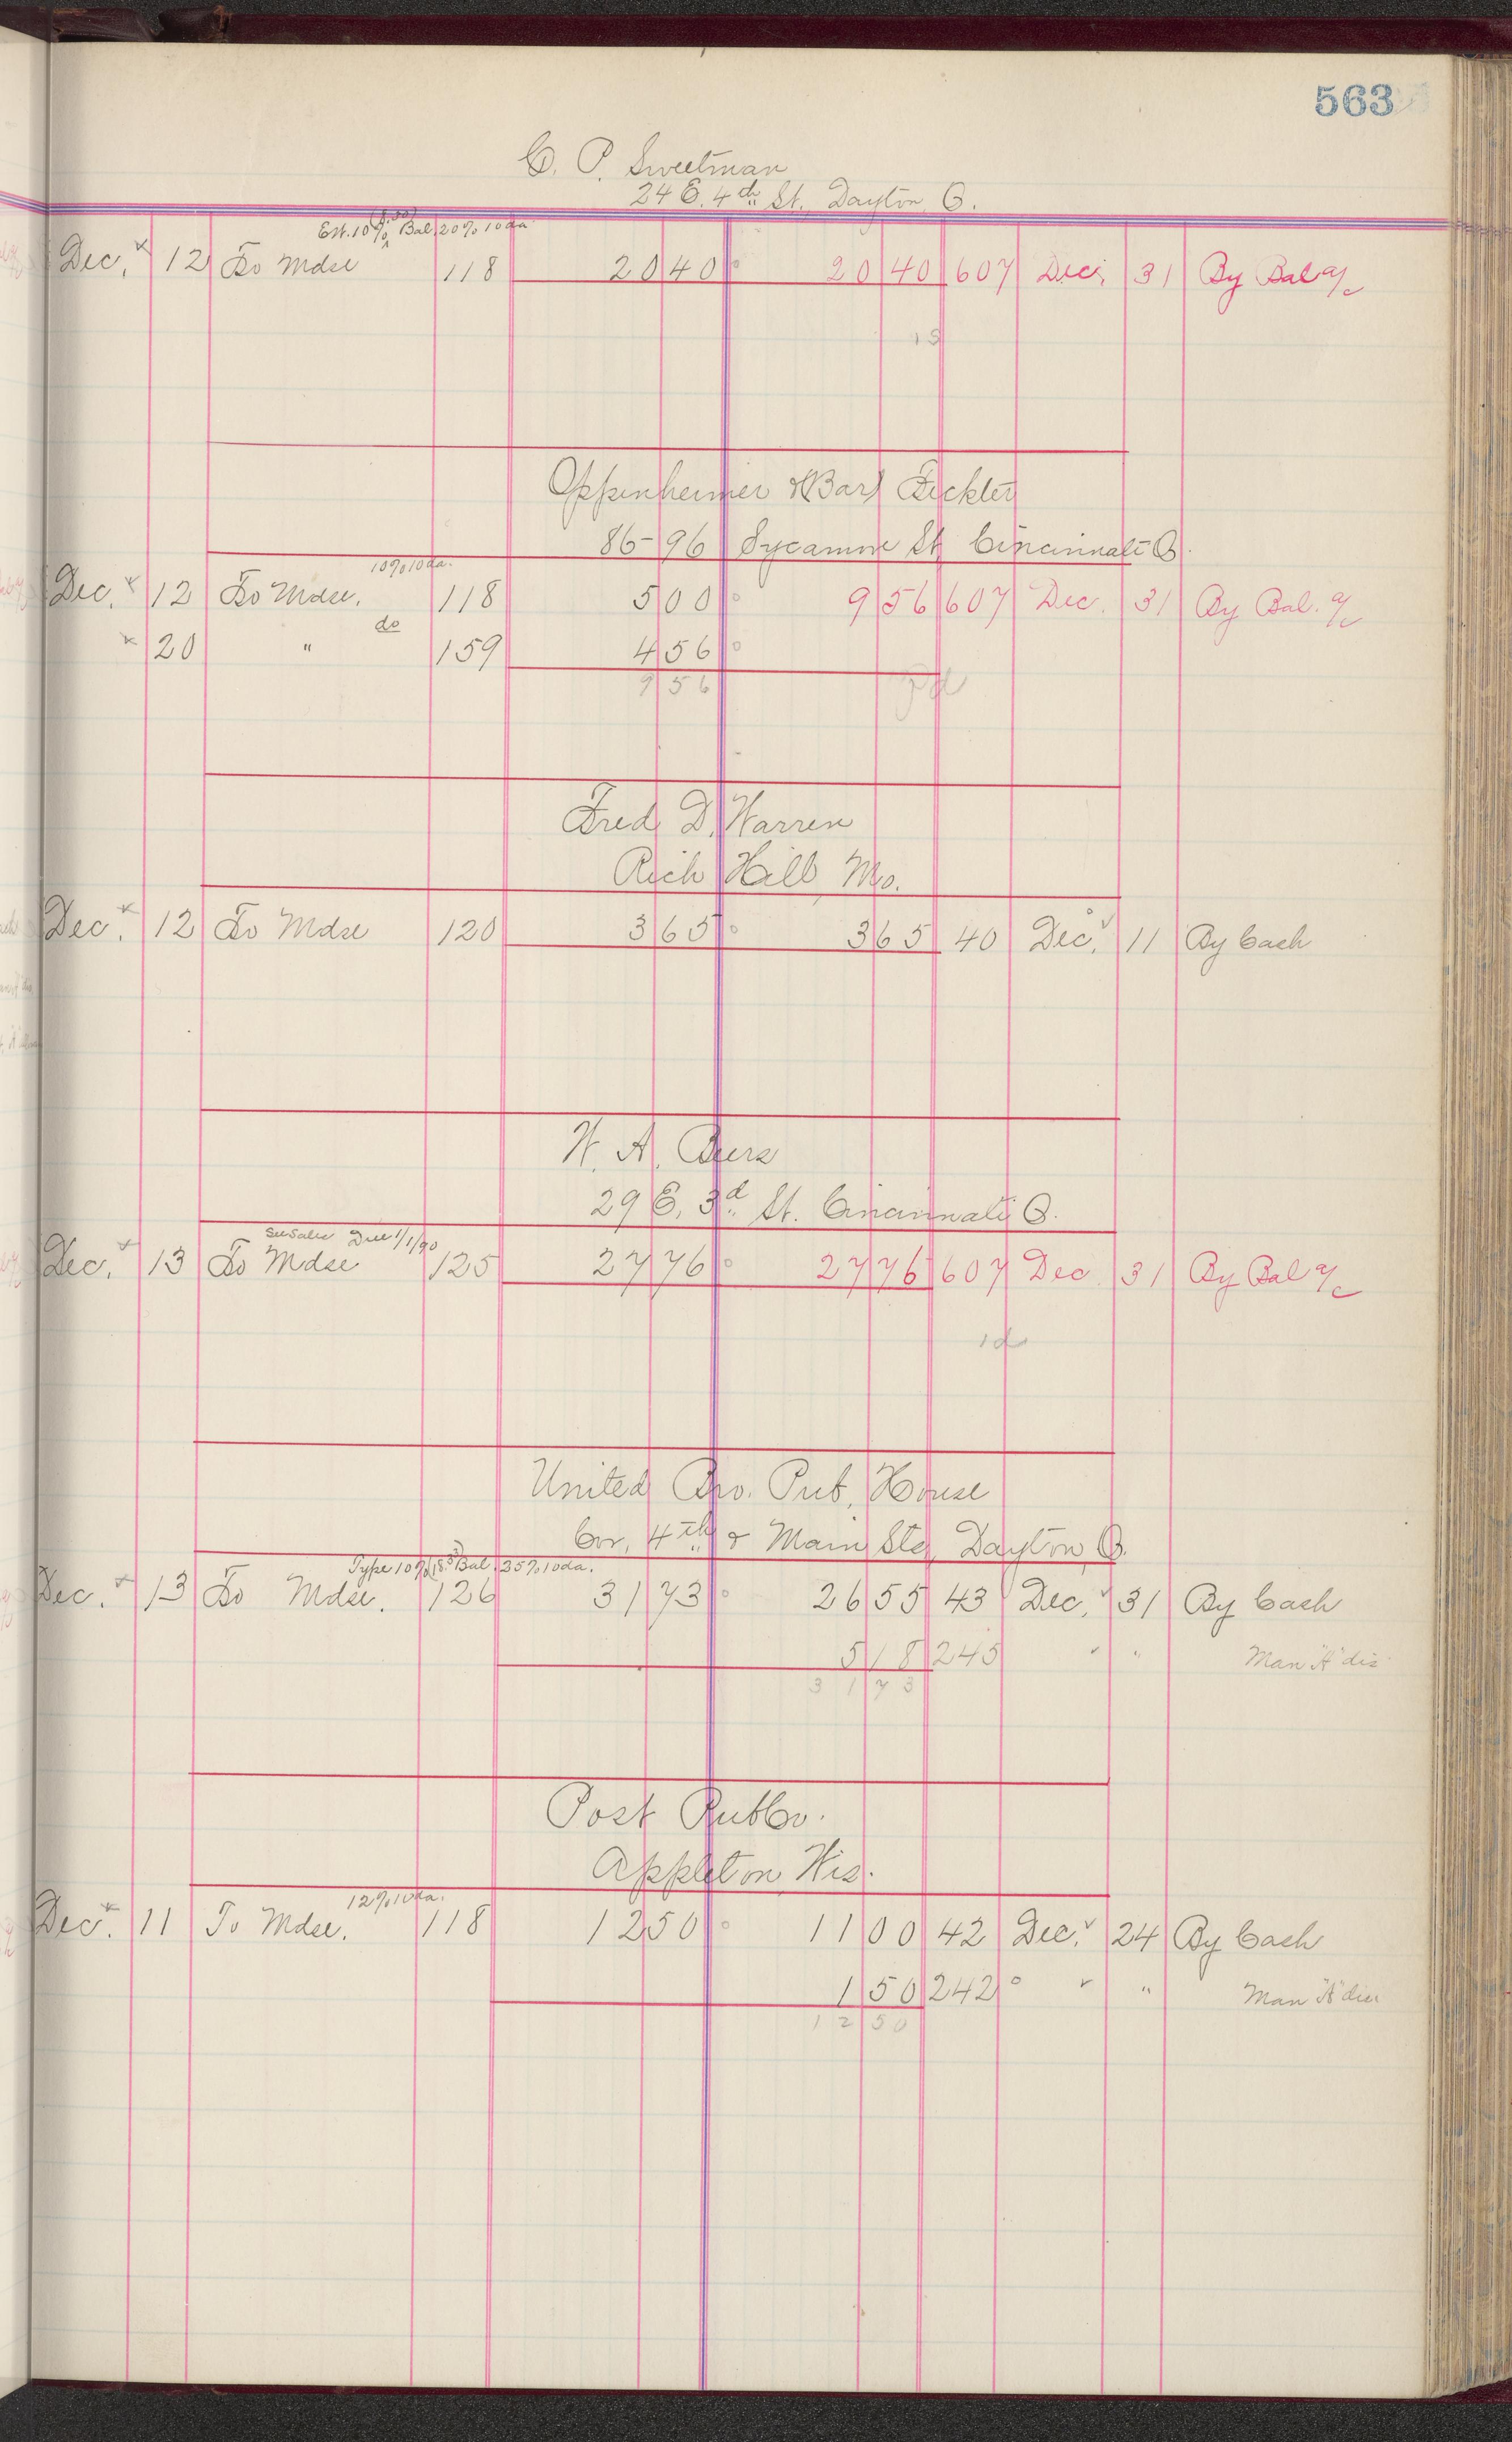 563
C. P. Sweetman
24 E. 4th St. Dayton O.
Est. 10% Bal. 20% 10 da
Dec. 12 To Mdse 118 20 40 20 40 607 Dec. 31 By Bal a/c
Oppenheimer
86-96 Sycamore St. Cincinnati O.
10% 10 da.
Dec. 12 To Mdse. 118 5 00 9 56 607 Dec. 31 By Bal. a/c
do
20 " 159 4 56
9 56
Fred D. Warren
Rich Hill Mo.
Dec. 12 To Mdse 120 3 65 3 65 40 Dec. 11 By Cash
W. A. Beers
29 E. 3d St. Cincinnati O.
See Sales Due 1/1/90
Dec. 13 To Mdse 125 27 76 27 76 607 Dec. 31 By Bal a/c
United Bro. Pub. House
Cor. 4th & Main Sts. Dayton O.
Type 10% Bal. 25% 10 da.
Dec. 13 To Mdse. 126 31 73 26 55 43 Dec. 31 By Cash
5 18 245 " " Man "A" dis
31 73
Post Pub Co.
Appleton Wis.
12% 10 da.
Dec. 11 To Mdse. 118 12 50 11 00 42 Dec. 24 By Cash
1 50 242 " " Man "A" dis
12 50